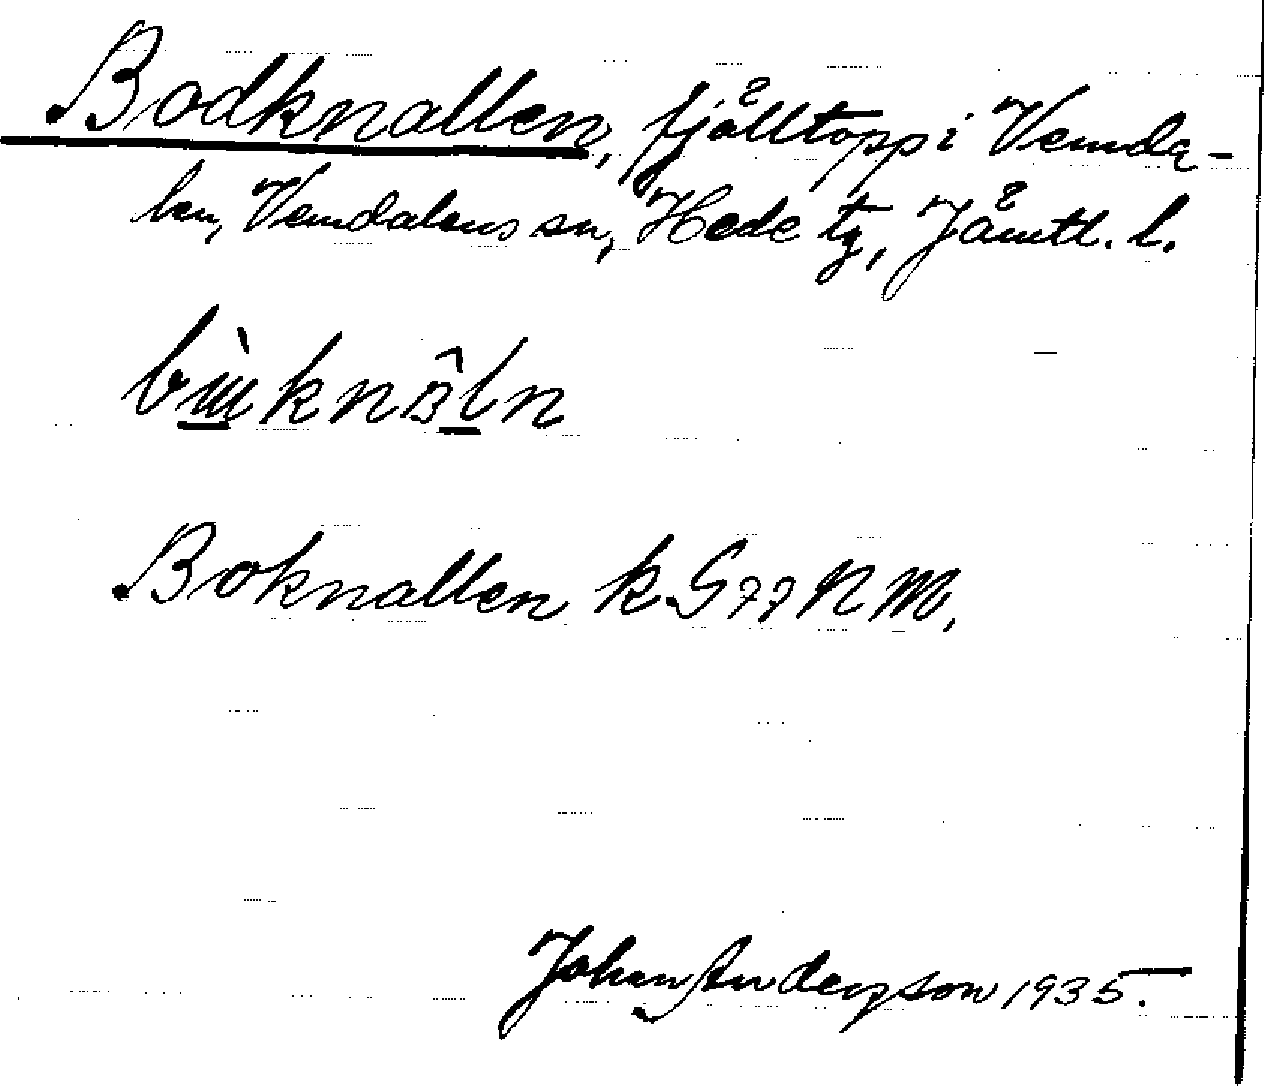 Bodknallen, fjälltopp i Vemda-
len, Vemdalens sn, Hede tg, Jämtl. l.
Boknallen k G 77 N M.
Johan Anderson 1935.